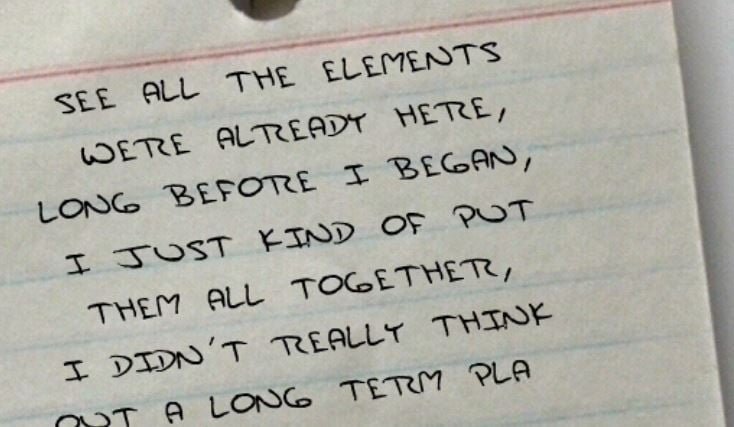 SEE ALL THE ELEMENTS
WERE ALREADY HERE,
LONG BEFORE I BEGAN,
I JUST KIND OF PUT
THEM ALL TOGETHER,
I DIDN'T REALLY THINK
OUT A LONG TERM PLA